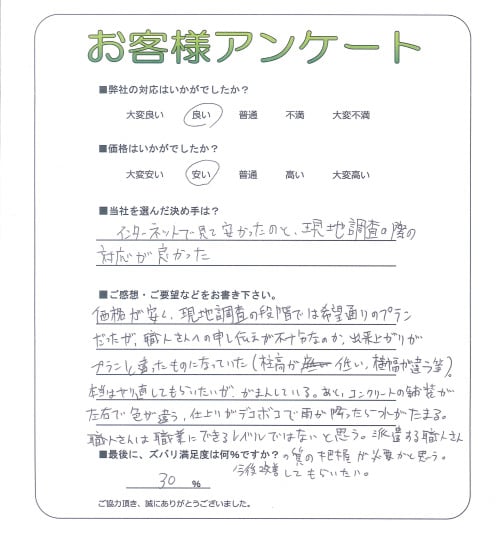 お客様アンケート
■弊社の対応はいかがでしたか？
大変良い 良い 普通 不満 大変不満
■価格はいかがでしたか？
大変安い 安い 普通 高い 大変高い
■当社を選んだ決め手は？
インターネットで見て安かったのと、現地調査の際の
対応が良かった
■ご感想・ご要望などをお書き下さい。
価格が安く、現地調査の段階では希望通りのプラン
だったが、職人さんへの申し伝えが不十分なのか、出来上がりが
プランと違ったものになっていた(柱高が 低い、横幅が違う等)。
本当はやり直してもらいたいが、がまんしている。あと、コンクリートの舗装が
左右で色が違う、仕上りがデコボコで雨が降ったら水がたまる。
職人さんは職業にできるレイルではないと思う。派遣する職人さん
の質の把握が必要かと思う。
■最後に、ズバリ満足度は何%ですか？
今後改善してもらいたい。
30 %
ご協力頂き、誠にありがとうございました。